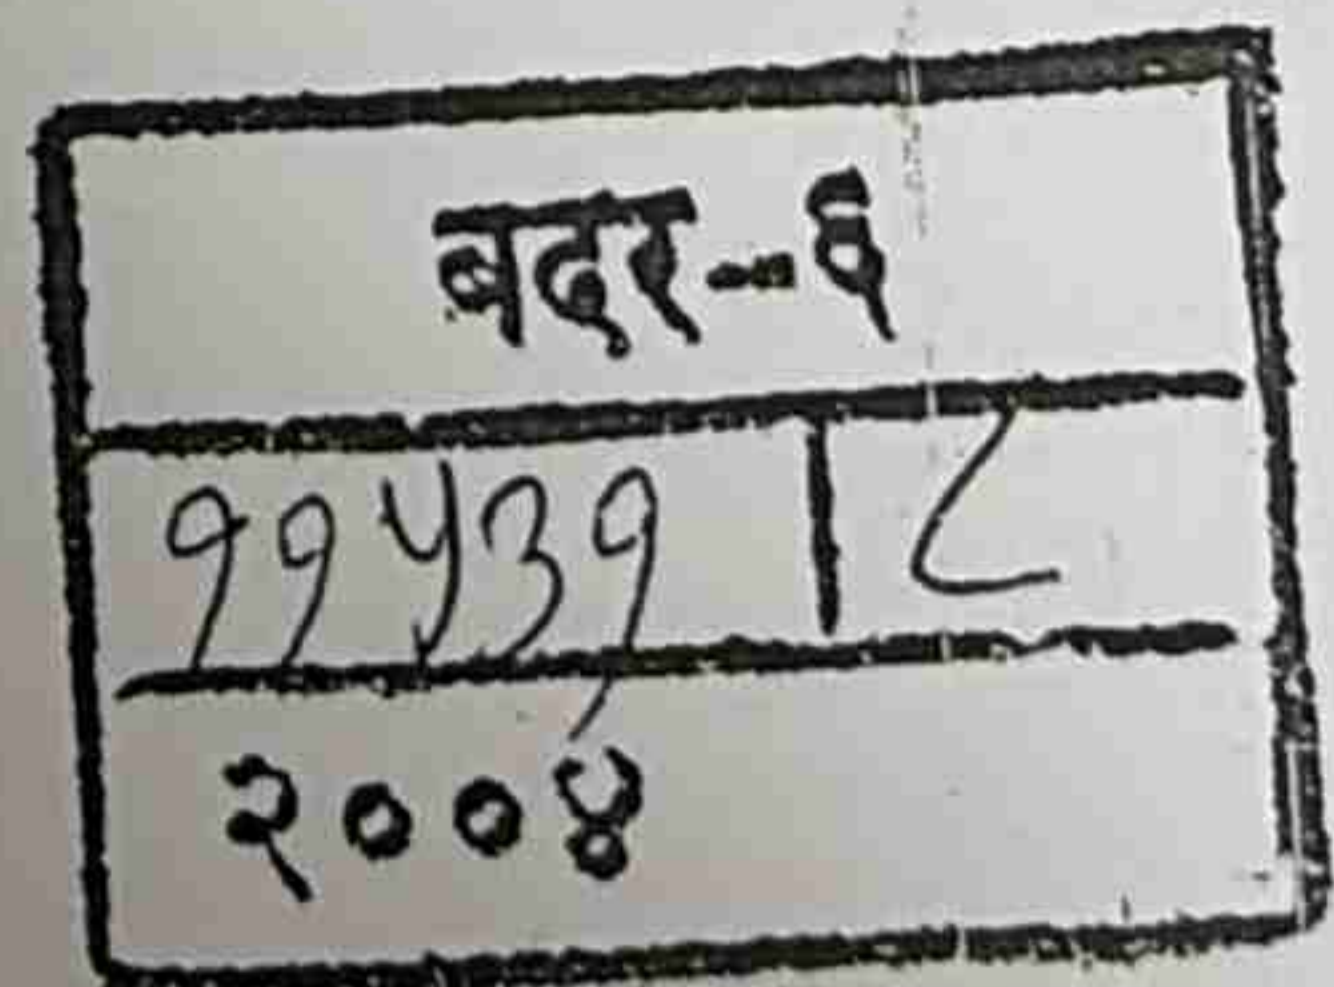 बदर-६
११५३१ ८
२००४